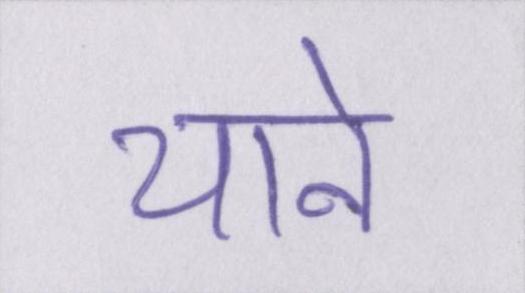 याने